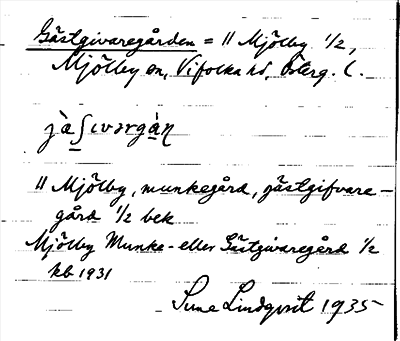 Gästgivaregården = // Mjölby 1/2,
Mjölby sn, Vifolka hd, Österg. l.
jà ʃıvərgàn
// Mjölby, munkegård, gästgifvare-
gård 1/2 bek
Mjölby Munke- eller Gästgivaregård 1/2
kb 1931
Sune Lindqvist 1935